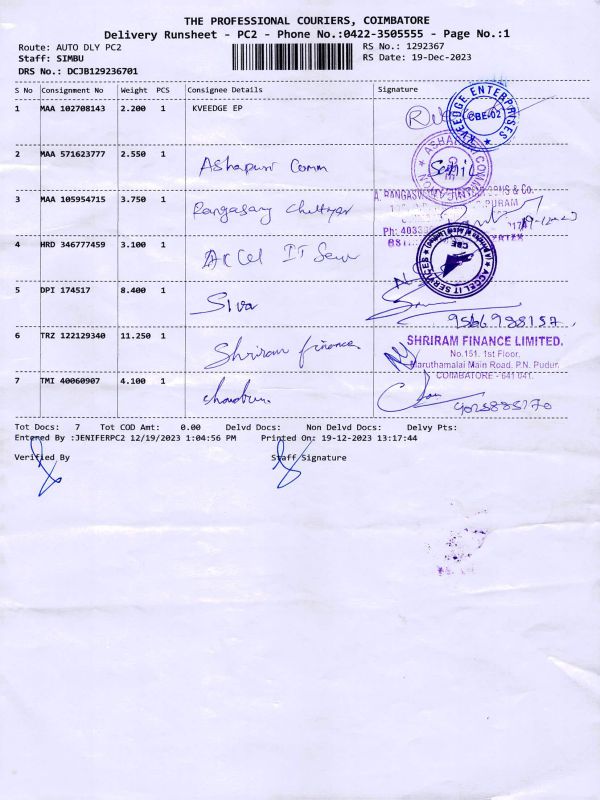 THE PROFESSIONAL COURIERS, COIMBATORE
Delivery Runsheet - PC2 - Phone No.:0422-3505555 - Page No.:1
Route: AUTO DLY PC2 RS No.: 1292367
Staff: SIMBU RS Date: 19-Dec-2023
DRS No.: DCJB129236701
S No Consignment No Weight PCS Consignee Details Signature
1 MAA 102708143 2.200 1 KVEEDGE EP
KVEEDGE ENTERPRISES
CBE-02
2 MAA 571623777 2.550 1 Ashapuri Comm
3 MAA 105954715 3.750 1 Rangasamy Chettyar
A. RANGASWAMY & Co.
PURAM
19-12-23
4 HRD 346777459 3.100 1 Accel IT Serv
ACCEL IT SERVICES
CBE
5 DPI 174517 8.400 1 Siva
9566988157
6 TRZ 122129340 11.250 1 Shriram finance
SHRIRAM FINANCE LIMITED.
No.151. 1st Floor,
Maruthamalai Main Road, P.N. Pudur.
COIMBATORE - 641 041.
7 TMI 40060907 4.100 1
9025885270
Tot Docs: 7 Tot COD Amt: 0.00 Delvd Docs: Non Delvd Docs: Delvy Pts:
Entered By :JENIFERPC2 12/19/2023 1:04:56 PM Printed On: 19-12-2023 13:17:44
Verified By Staff Signature